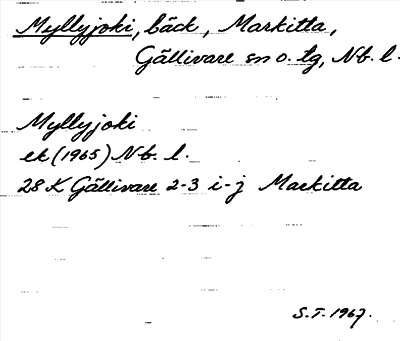 Myllyjoki, bäck, Markitta,
Gällivare sn o. tg, Nb. l.
Myllyjoki
ek (1965) Nb. l.
28 K Gällivare 2-3 i-j Markitta
S.T. 1967.